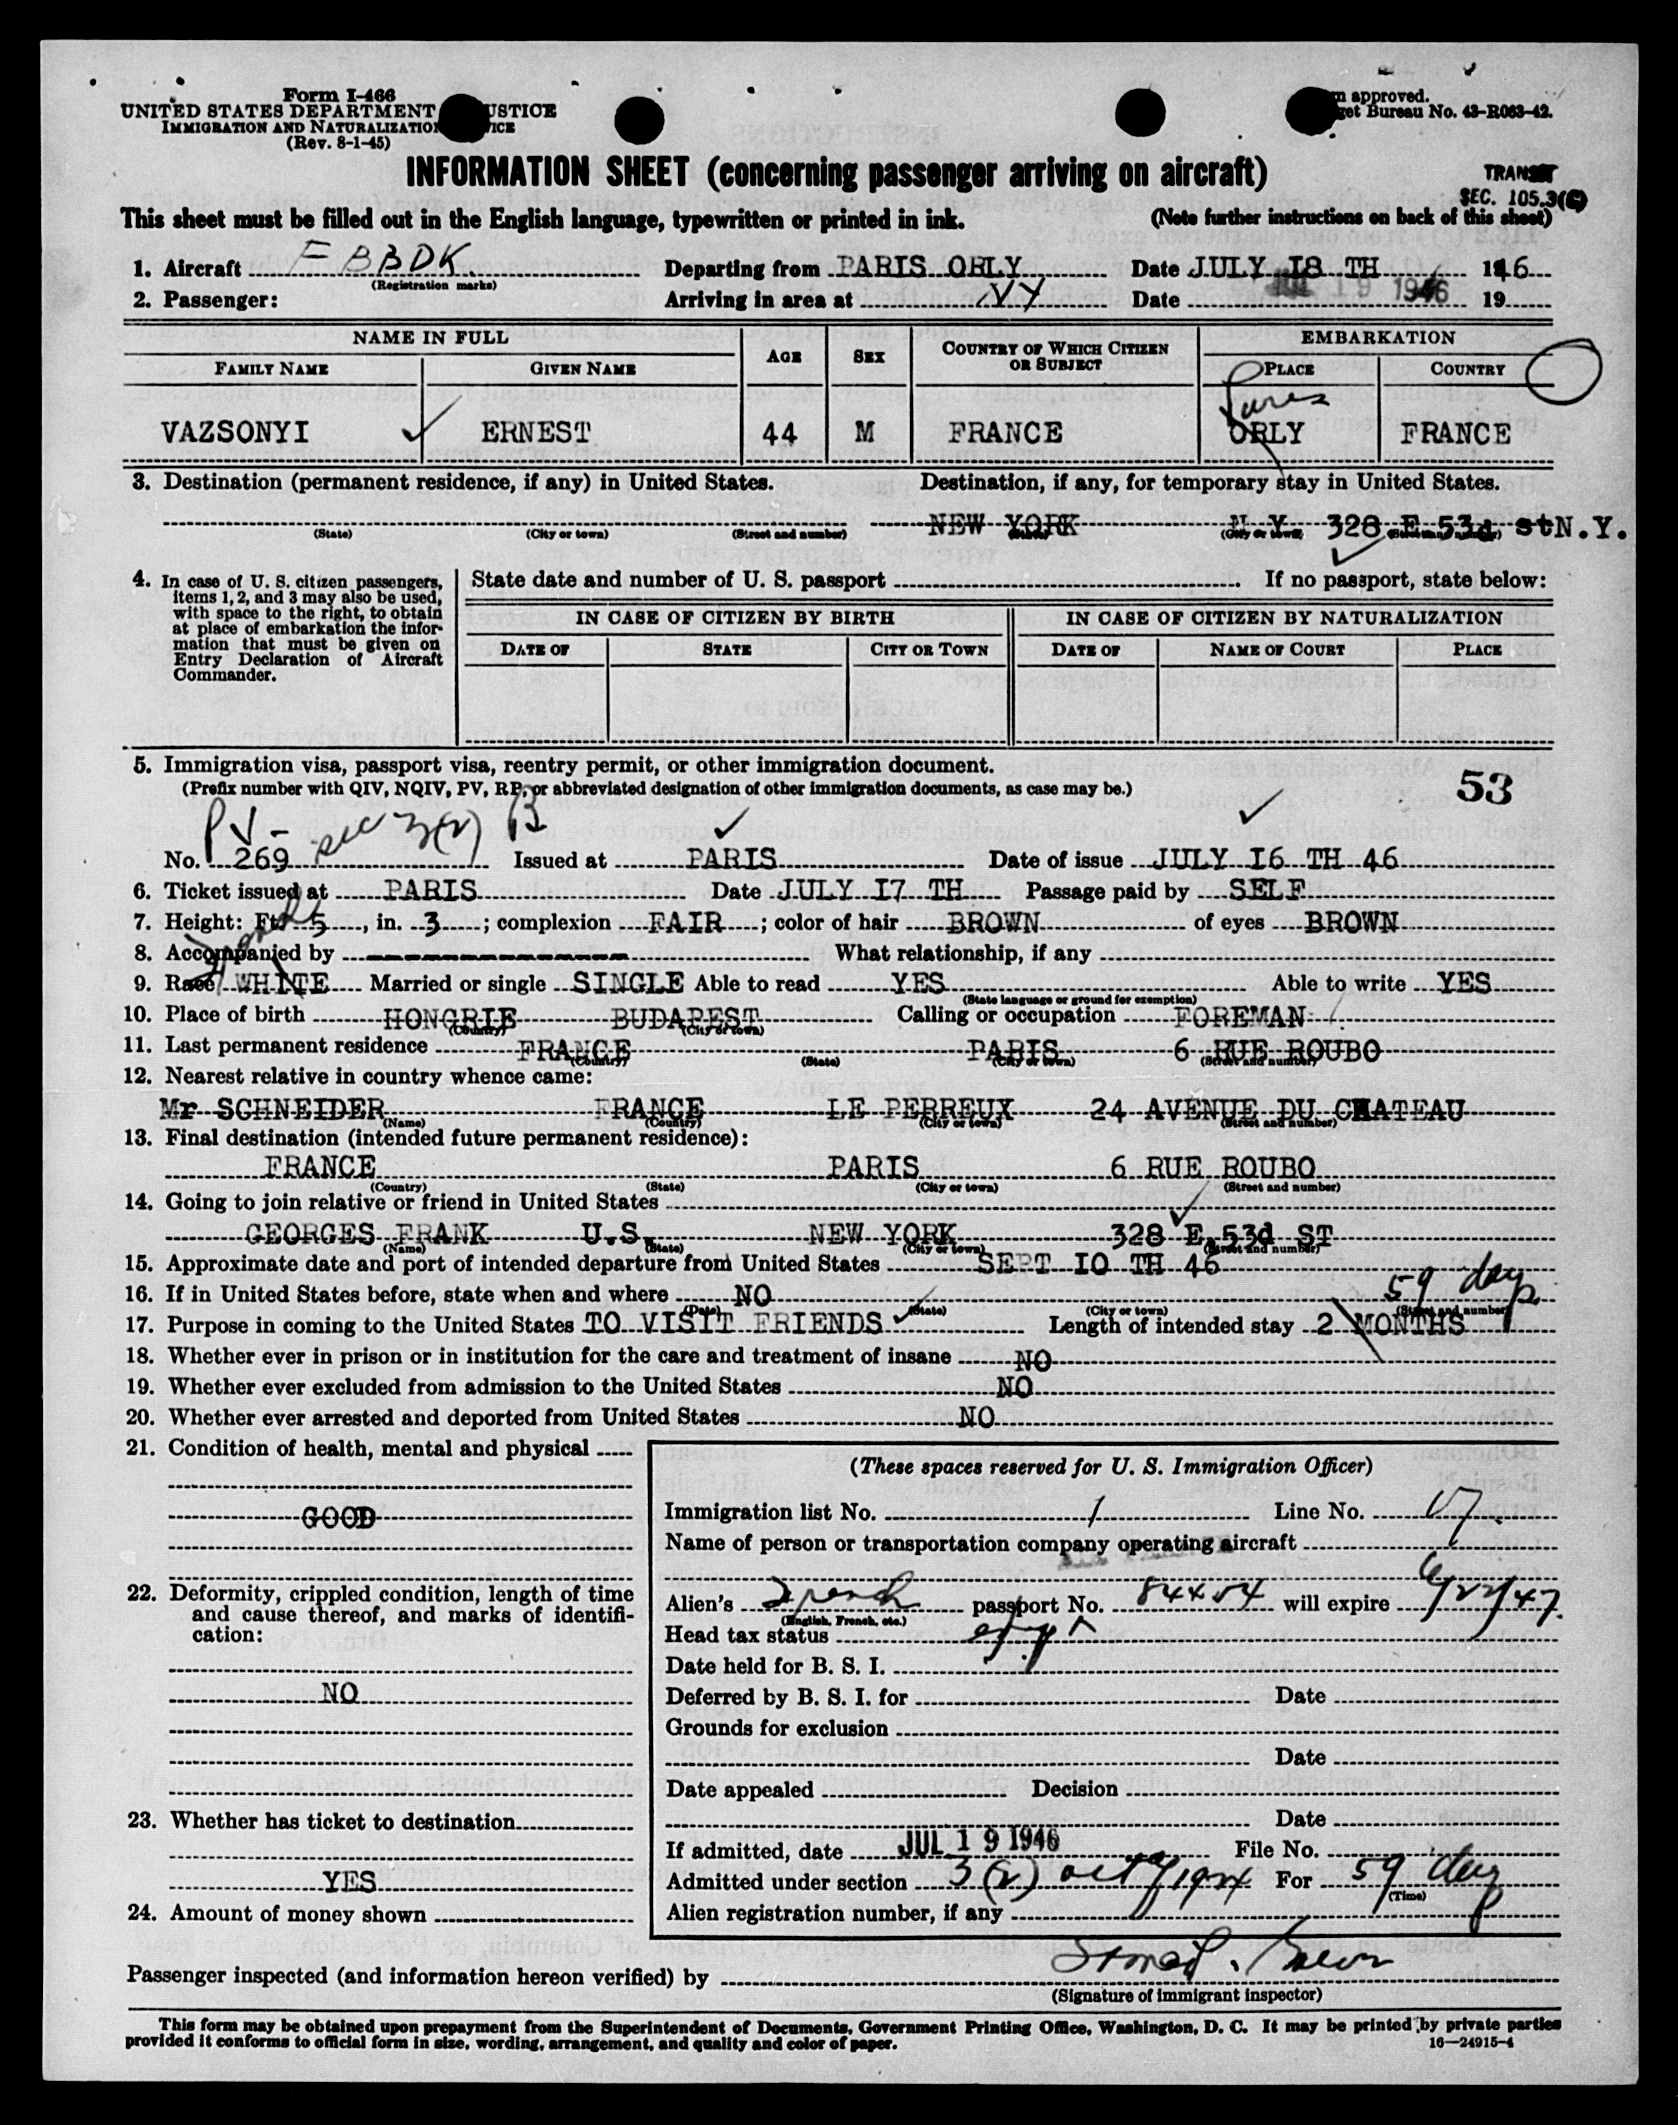 Form I-466
UNITED STATES DEPARTMENT USTICE
IMMIGRATION AND NATURALIZATION VICE
(Rev. 8-1-45)
approved.
get Bureau No. 43-R063-42.
INFORMATION SHEET (concerning passenger arriving on aircraft)
TRANSIT
SEC. 105.3(C)
This sheet must be filled out in the English language, typewritten or printed in ink. (Note further instructions on back of this sheet)
1. Aircraft F BBDK. Departing from PARIS ORLY Date JULY I8 TH 1946
(Registration marks)
2. Passenger: Arriving in area at NY Date JUL 19 1946 19
NAME IN FULL AGE SEX COUNTRY OF WHICH CITIZEN OR SUBJECT EMBARKATION
FAMILY NAME GIVEN NAME PLACE COUNTRY
Paris
VAZSONYI ERNEST 44 M FRANCE ORLY FRANCE
3. Destination (permanent residence, if any) in United States. Destination, if any, for temporary stay in United States.
NEW YORK N.Y. 328 E.53d st N.Y.
(State) (City or town) (Street and number) (State) (City or town) (Street and number)
4. In case of U. S. citizen passengers, items 1, 2, and 3 may also be used, with space to the right, to obtain at place of embarkation the information that must be given on Entry Declaration of Aircraft Commander.
State date and number of U. S. passport If no passport, state below:
IN CASE OF CITIZEN BY BIRTH IN CASE OF CITIZEN BY NATURALIZATION
DATE OF STATE CITY OR TOWN DATE OF NAME OF COURT PLACE
5. Immigration visa, passport visa, reentry permit, or other immigration document.
(Prefix number with QIV, NQIV, PV, RP, or abbreviated designation of other immigration documents, as case may be.)
53
PV- sec 3(2) B
No. 269 Issued at PARIS Date of issue JULY I6 TH 46
6. Ticket issued at PARIS Date JULY I7 TH Passage paid by SELF
7. Height: Ft. 5, in. 3; complexion FAIR; color of hair BROWN of eyes BROWN
8. Accompanied by What relationship, if any
9. Race WHITE Married or single SINGLE Able to read YES Able to write YES
(State language or ground for exemption)
10. Place of birth HONGRIE BUDAPEST Calling or occupation FOREMAN
(Country) (City or town)
11. Last permanent residence FRANCE PARIS 6 RUE ROUBO
(Country) (State) (City or town) (Street and number)
12. Nearest relative in country whence came:
Mr SCHNEIDER FRANCE LE PERREUX 24 AVENUE DU CHATEAU
(Name) (Country) (City or town) (Street and number)
13. Final destination (intended future permanent residence):
FRANCE PARIS 6 RUE ROUBO
(Country) (State) (City or town) (Street and number)
14. Going to join relative or friend in United States
GEORGES FRANK U.S. NEW YORK 328 E.53d ST
(Name) (State) (City or town) (Street and number)
15. Approximate date and port of intended departure from United States SEPT IO TH 46
59 days
16. If in United States before, state when and where NO
(Date) (State) (City or town) (Street and number)
17. Purpose in coming to the United States TO VISIT FRIENDS Length of intended stay 2 MONTHS
18. Whether ever in prison or in institution for the care and treatment of insane NO
19. Whether ever excluded from admission to the United States NO
20. Whether ever arrested and deported from United States NO
21. Condition of health, mental and physical
GOOD
22. Deformity, crippled condition, length of time and cause thereof, and marks of identification:
NO
23. Whether has ticket to destination
YES
24. Amount of money shown
(These spaces reserved for U. S. Immigration Officer)
Immigration list No. 1 Line No. 17
Name of person or transportation company operating aircraft
Alien's French passport No. 84404 will expire 6/22/47.
(English, French, etc.)
Head tax status
Date held for B. S. I.
Deferred by B. S. I. for Date
Grounds for exclusion
Date
Date appealed Decision
Date
If admitted, date JUL 19 1946 File No.
Admitted under section 3(2) act of 1924 For 59 days
(Time)
Alien registration number, if any
Passenger inspected (and information hereon verified) by
(Signature of immigrant inspector)
This form may be obtained upon prepayment from the Superintendent of Documents, Government Printing Office, Washington, D. C. It may be printed by private parties
provided it conforms to official form in size, wording, arrangement, and quality and color of paper. 16—24915-4